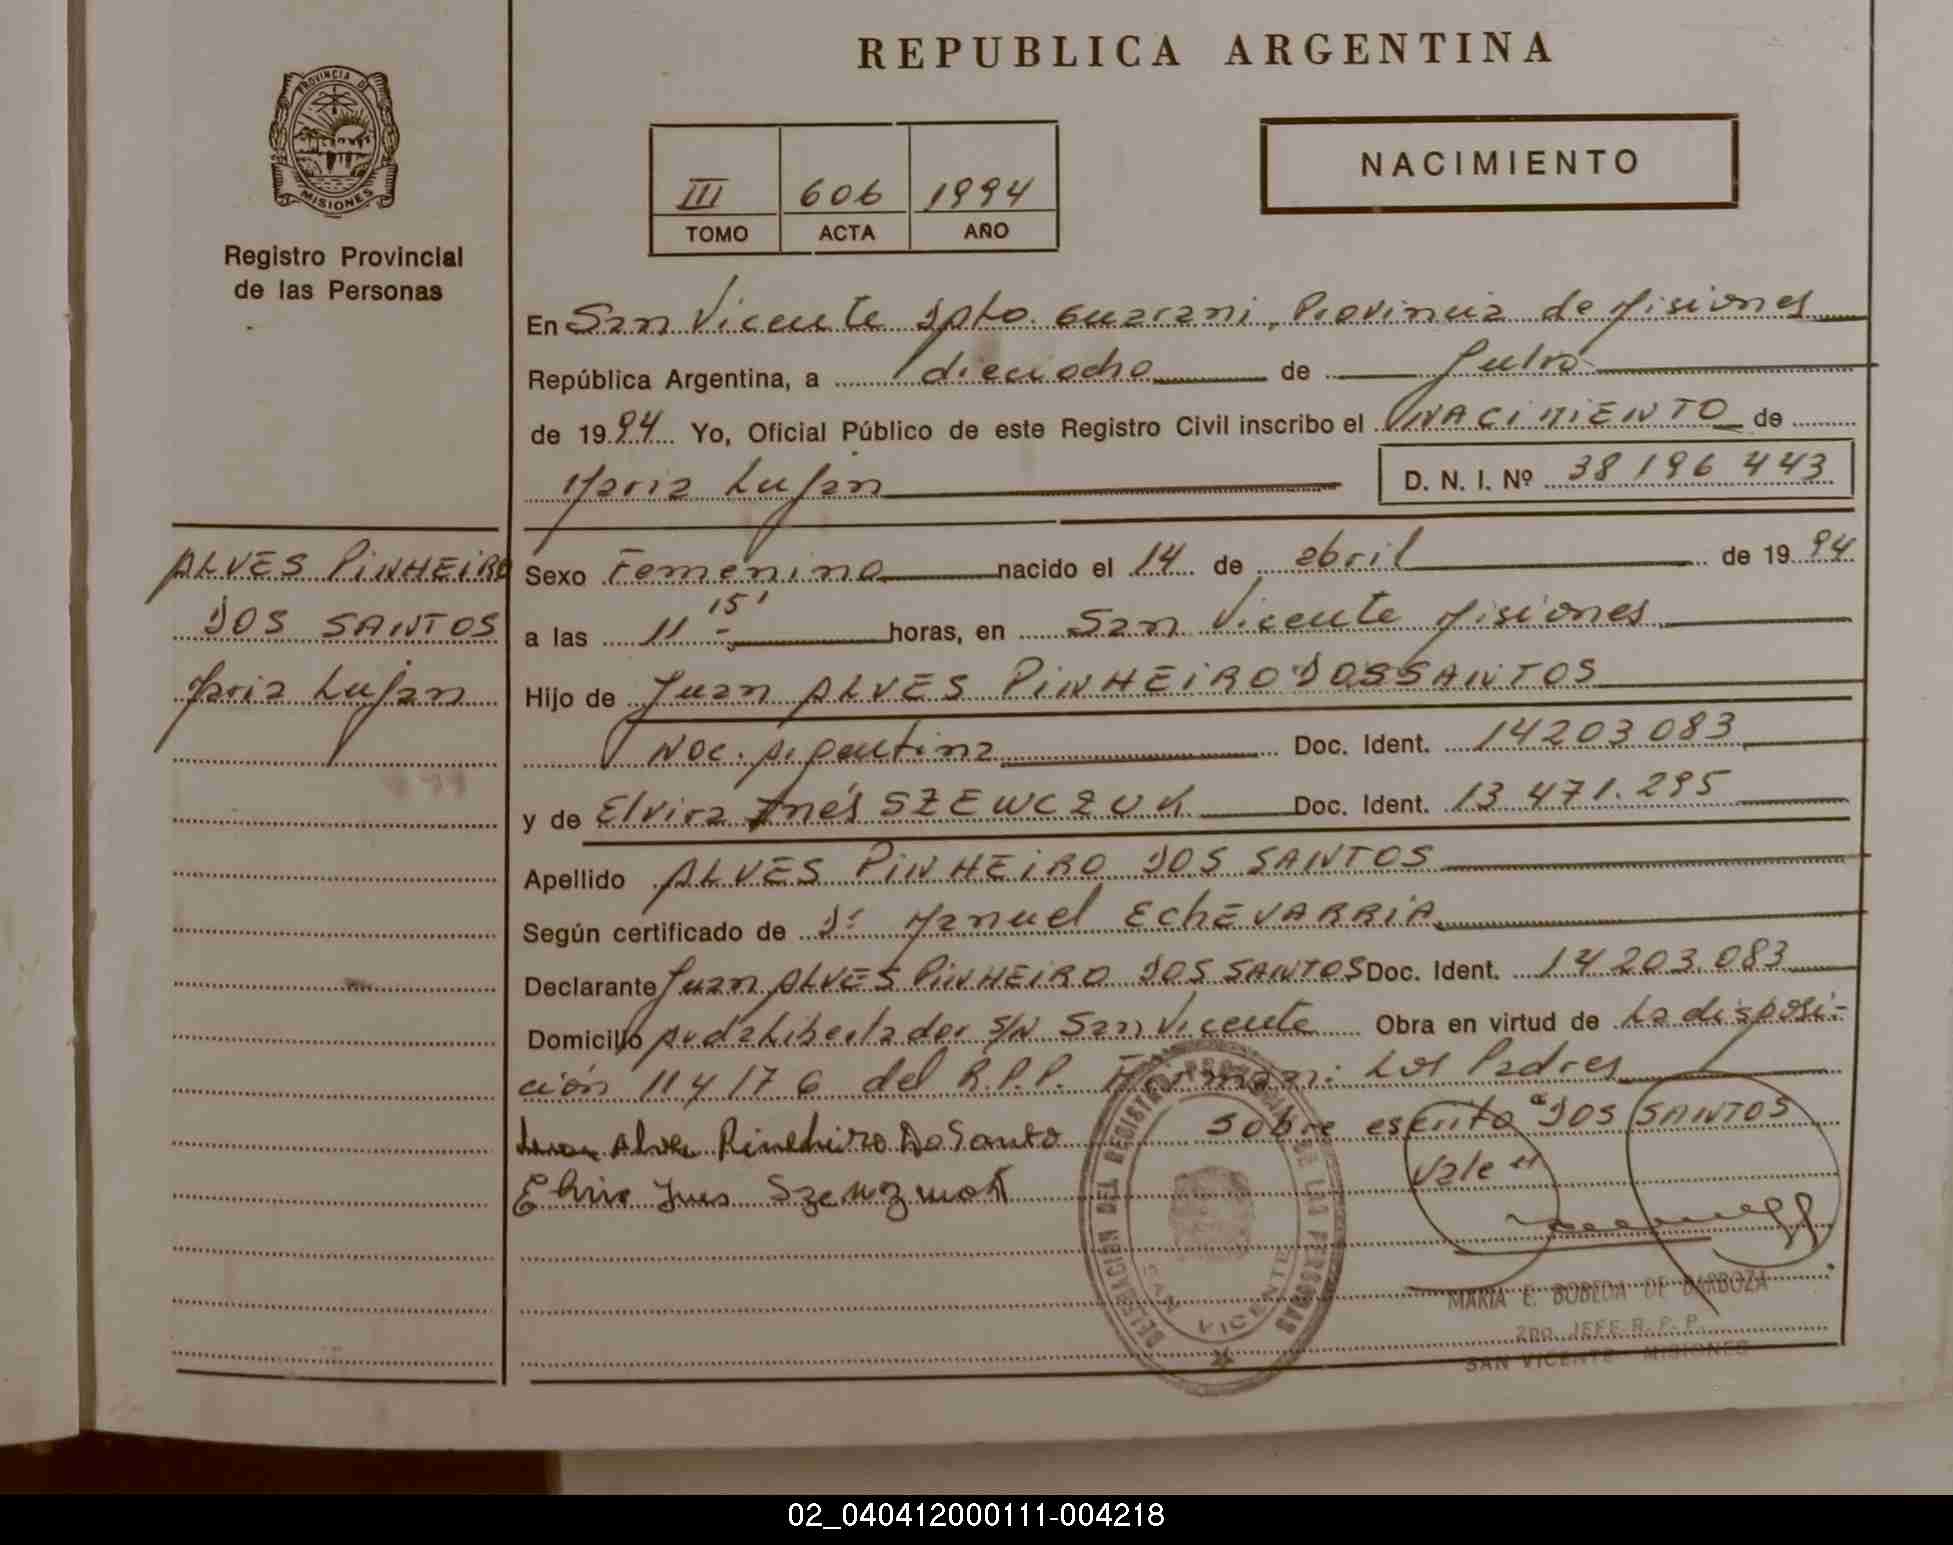 REPUBLICA ARGENTINA
PROVINCIA DE
MISIONES
Registro Provincial
de las Personas
III 606 1994
TOMO ACTA AÑO
NACIMIENTO
En San Vicente Dpto. Guarani, Provincia de Misiones
República Argentina, a dieciocho de Julio
de 1994 Yo, Oficial Público de este Registro Civil inscribo el NACIMIENTO de
Maria Lujan D. N. I. Nº 38 196 443
ALVES PINHEIRO
DOS SANTOS
Maria Lujan
Sexo Femenino nacido el 14 de abril de 1994
a las 11 15' horas, en San Vicente Misiones
Hijo de Juan ALVES PINHEIRO DOS SANTOS
Nac. Argentina Doc. Ident. 14203083
y de Elvira Inés SZEWCZUK Doc. Ident. 13 471.295
Apellido ALVES PINHEIRO DOS SANTOS
Según certificado de Dr Manuel EchEVARRIA
Declarante Juan ALVES PINHEIRO DOS SANTOS Doc. Ident. 14 203.083
Domicilio Avda Libertador S/N San Vicente Obra en virtud de La disposi-
ción 114/76 del R.P.P. Firman: Los Padres
Alves Pinheiro Do Santo Sobre escrito "DOS SANTOS
Vale"
DELEGACION DEL REGISTRO PROVINCIAL DE LAS PERSONAS
SAN VICENTE
MARIA E. BOBEDA DE BARBOZA
2DO. JEFE R. P. P.
SAN VICENTE - MISIONES
02_040412000111-004218